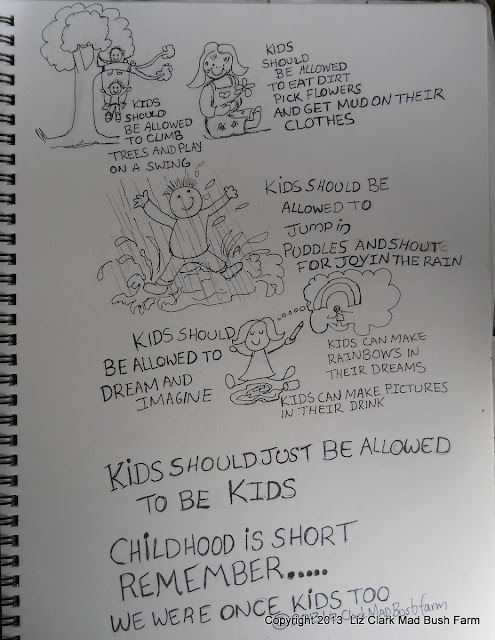 KIDS
SHOULD
BE ALLOWED
TO CLIMB
TREES AND PLAY
ON A SWING
KIDS
SHOULD
BE ALLOWED
TO EAT DIRT
PICK FLOWERS
AND GET MUD ON THEIR
CLOTHES
KIDS SHOULD BE
ALLOWED TO
Jump in
PUDDLES AND SHOUT
FOR JOY IN THE RAIN
KIDS SHOULD
BE ALLOWED TO
DREAM AND
IMAGINE
KIDS CAN MAKE
RAINBOWS IN
THEIR DREAMS
KIDS CAN MAKE PICTURES
IN THEIR DRINK
KIDS SHOULD JUST BE ALLOWED
TO BE KIDS
CHILDHOOD IS SHORT
REMEMBER.....
WE WERE ONCE KIDS TOO
Clark MAD Bush farm
Copyright 2013 Liz Clark Mad Bush Farm